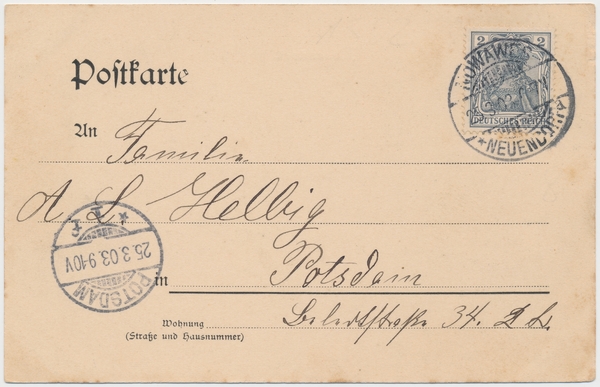 Postkarte
2 2
DEUTSCHES REICH
NOWAWES
* NEUENDORF
An Familie
A. L. Helbig
25.3.03.9-10V
POTSDAM
* 1 f
in Potsdam
Wohnung 34. 2 L.
(Straße und Hausnummer)